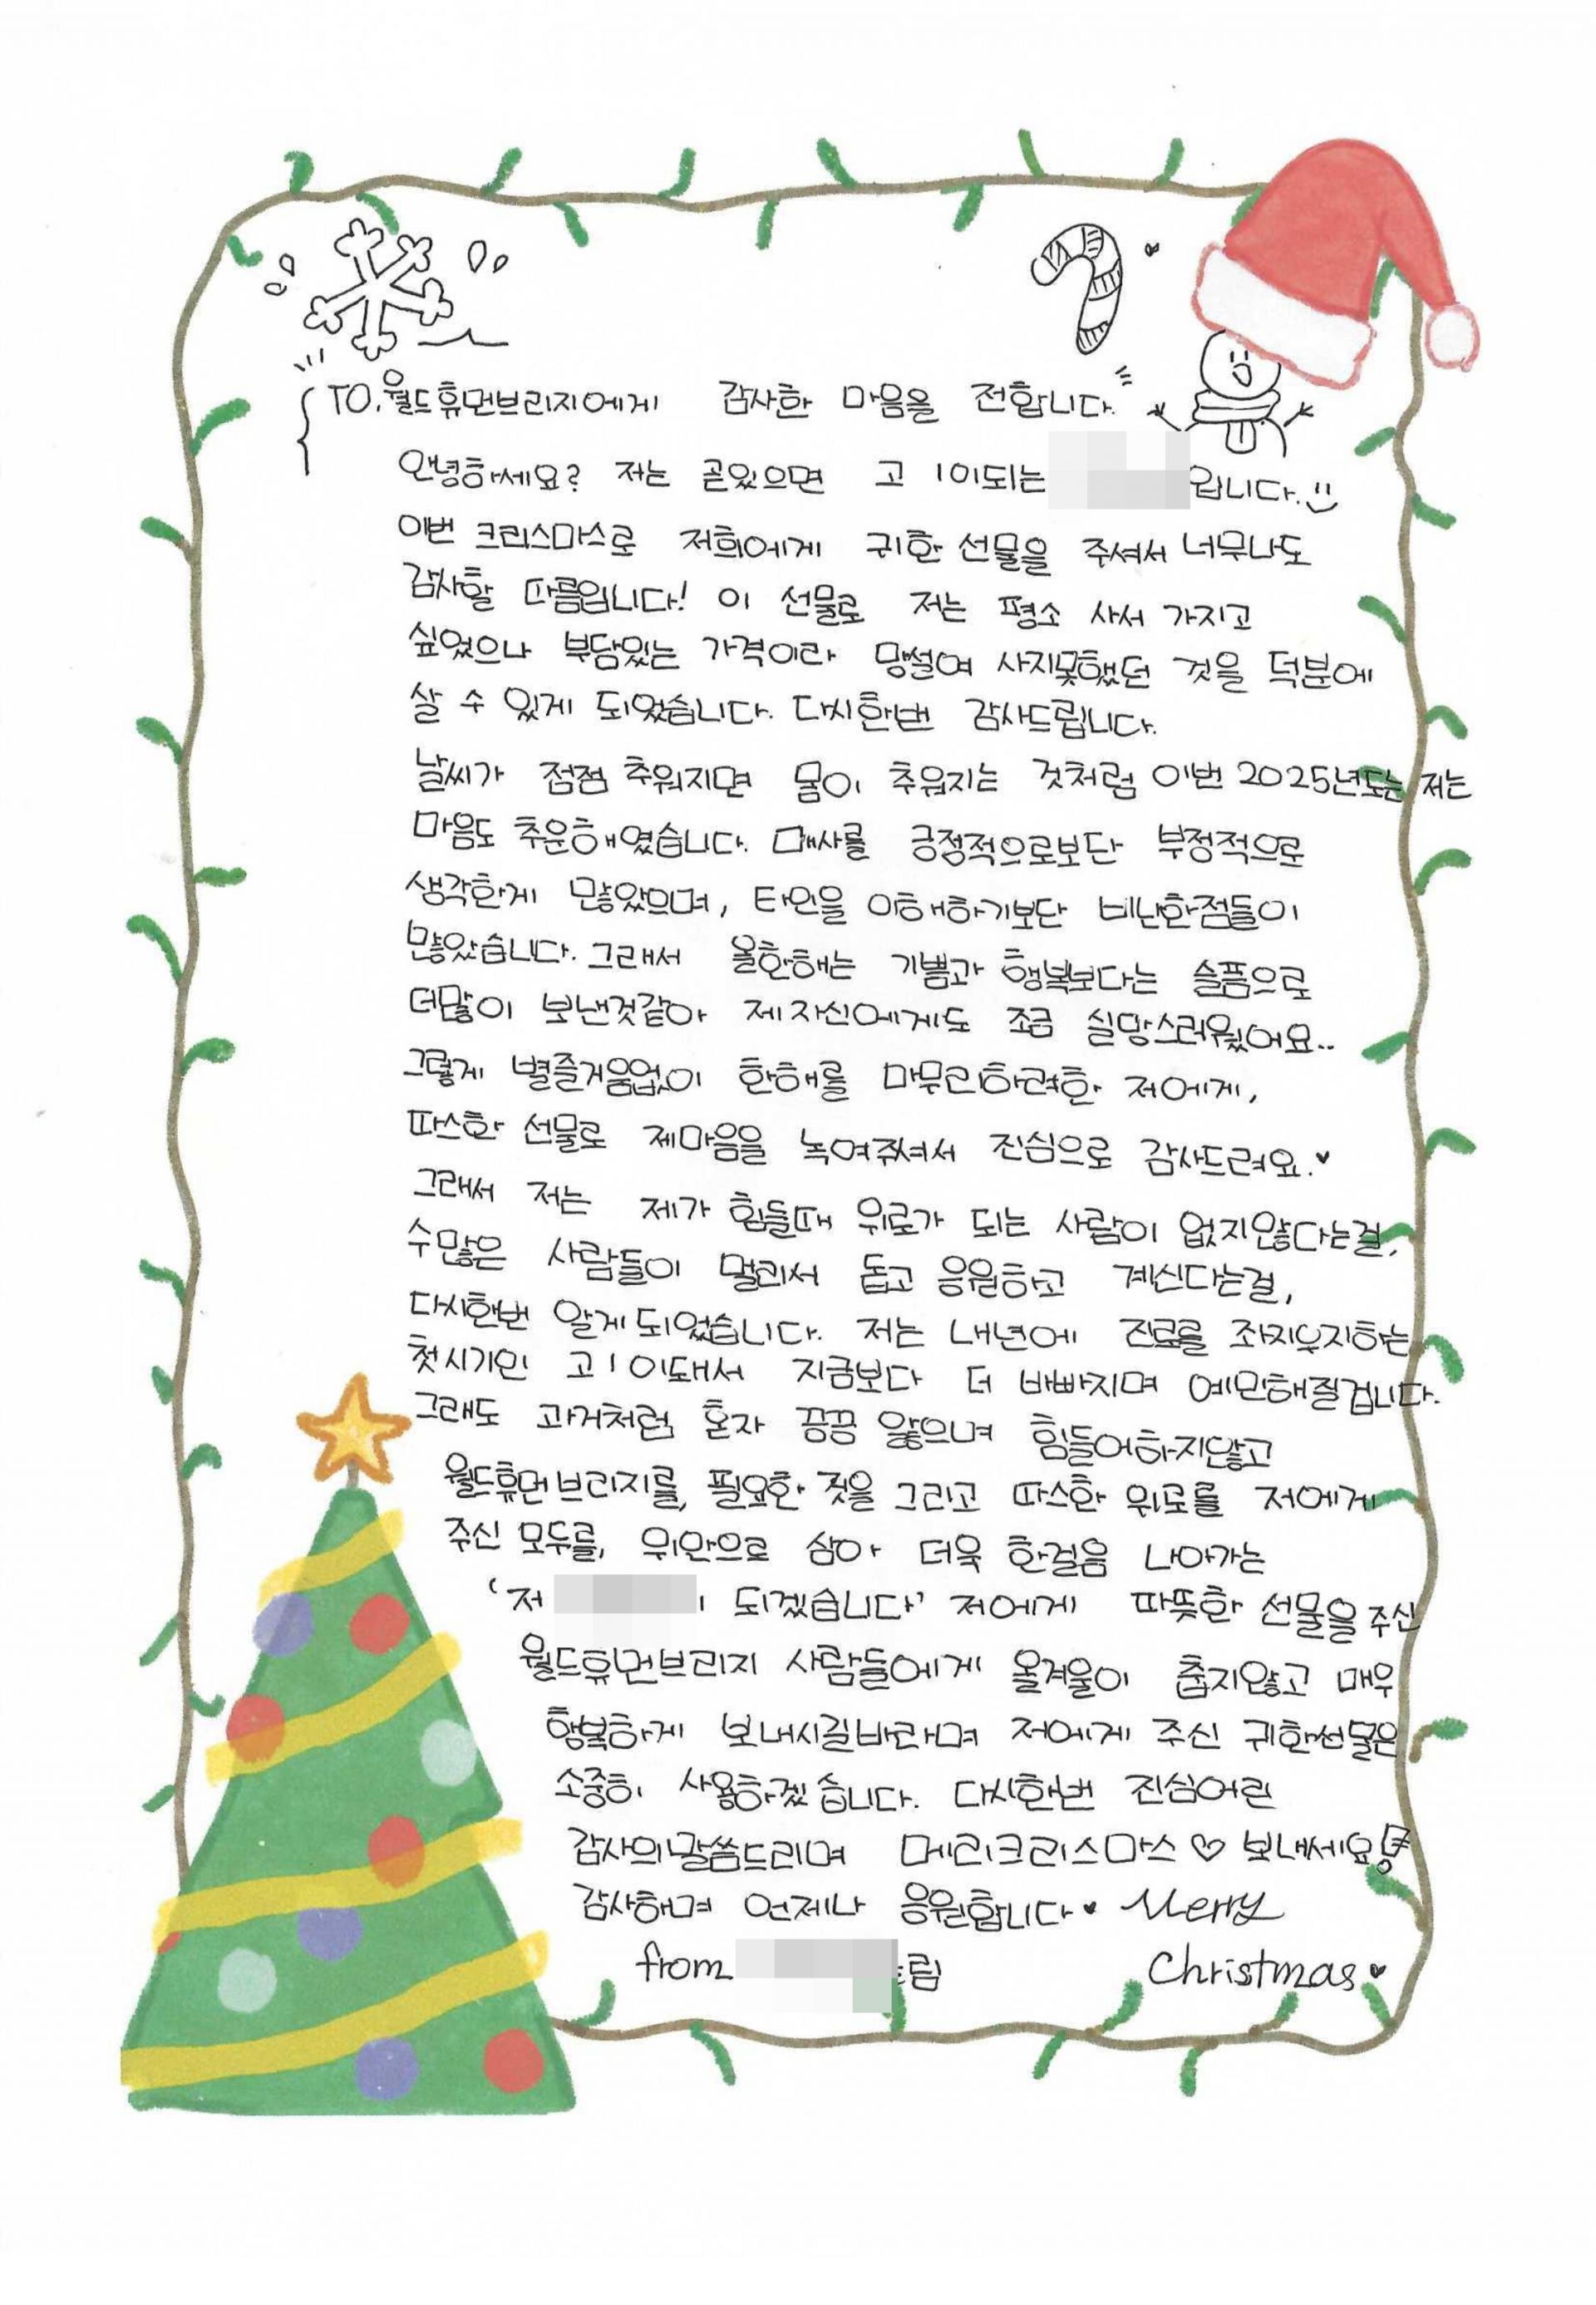 TO.월드휴먼브리지에게 감사한 마음을 전합니다.
안녕하세요? 저는 곧있으면 고 1이되는 입니다.
이번 크리스마스로 저희에게 귀한 선물을 주셔서 너무나도
감사할 따름입니다! 이 선물로 저는 평소 사서 가지고
싶었으나 부담있는 가격이라 망설여 사지못했던 것을 덕분에
살 수 있게 되었습니다. 다시한번 감사드립니다.
날씨가 점점 추워지면 몸이 추워지는 것처럼 이번 2025년도는 저는
마음도 추운해였습니다. 매사를 긍정적으로보단 부정적으로
생각한게 많았으며, 타인을 이해하기보단 비난한점들이
많았습니다. 그래서 올한해는 기쁨과 행복보다는 슬픔으로
더많이 보낸것같아 제자신에게도 조금 실망스러웠어요..
그렇게 별즐거움없이 한해를 마무리하려한 저에게,
따스한 선물로 제마음을 녹여주셔서 진심으로 감사드려요.♥
그래서 저는 제가 힘들때 위로가 되는 사람이 없지않다는걸,
수많은 사람들이 멀리서 돕고 응원하고 계신다는걸,
다시한번 알게되었습니다. 저는 내년에 진로를 좌지우지하는
첫시기인 고1이돼서 지금보다 더 바빠지며 예민해질겁니다.
그래도 과거처럼 혼자 끙끙 앓으며 힘들어하지않고
월드휴먼브리지를, 필요한 것을 그리고 따스한 위로를 저에게
주신 모두를, 위안으로 삼아 더욱 한걸음 나아가는
'저 되겠습니다' 저에게 따뜻한 선물을 주신
월드휴먼브리지 사람들에게 올겨울이 춥지않고 매우
행복하게 보내시길바라며 저에게 주신 귀한선물은
소중히 사용하겠습니다. 다시한번 진심어린
감사의말씀드리며 메리크리스마스♡ 보내세요!
감사하며 언제나 응원합니다♥ Merry
from 림 Christmas♥